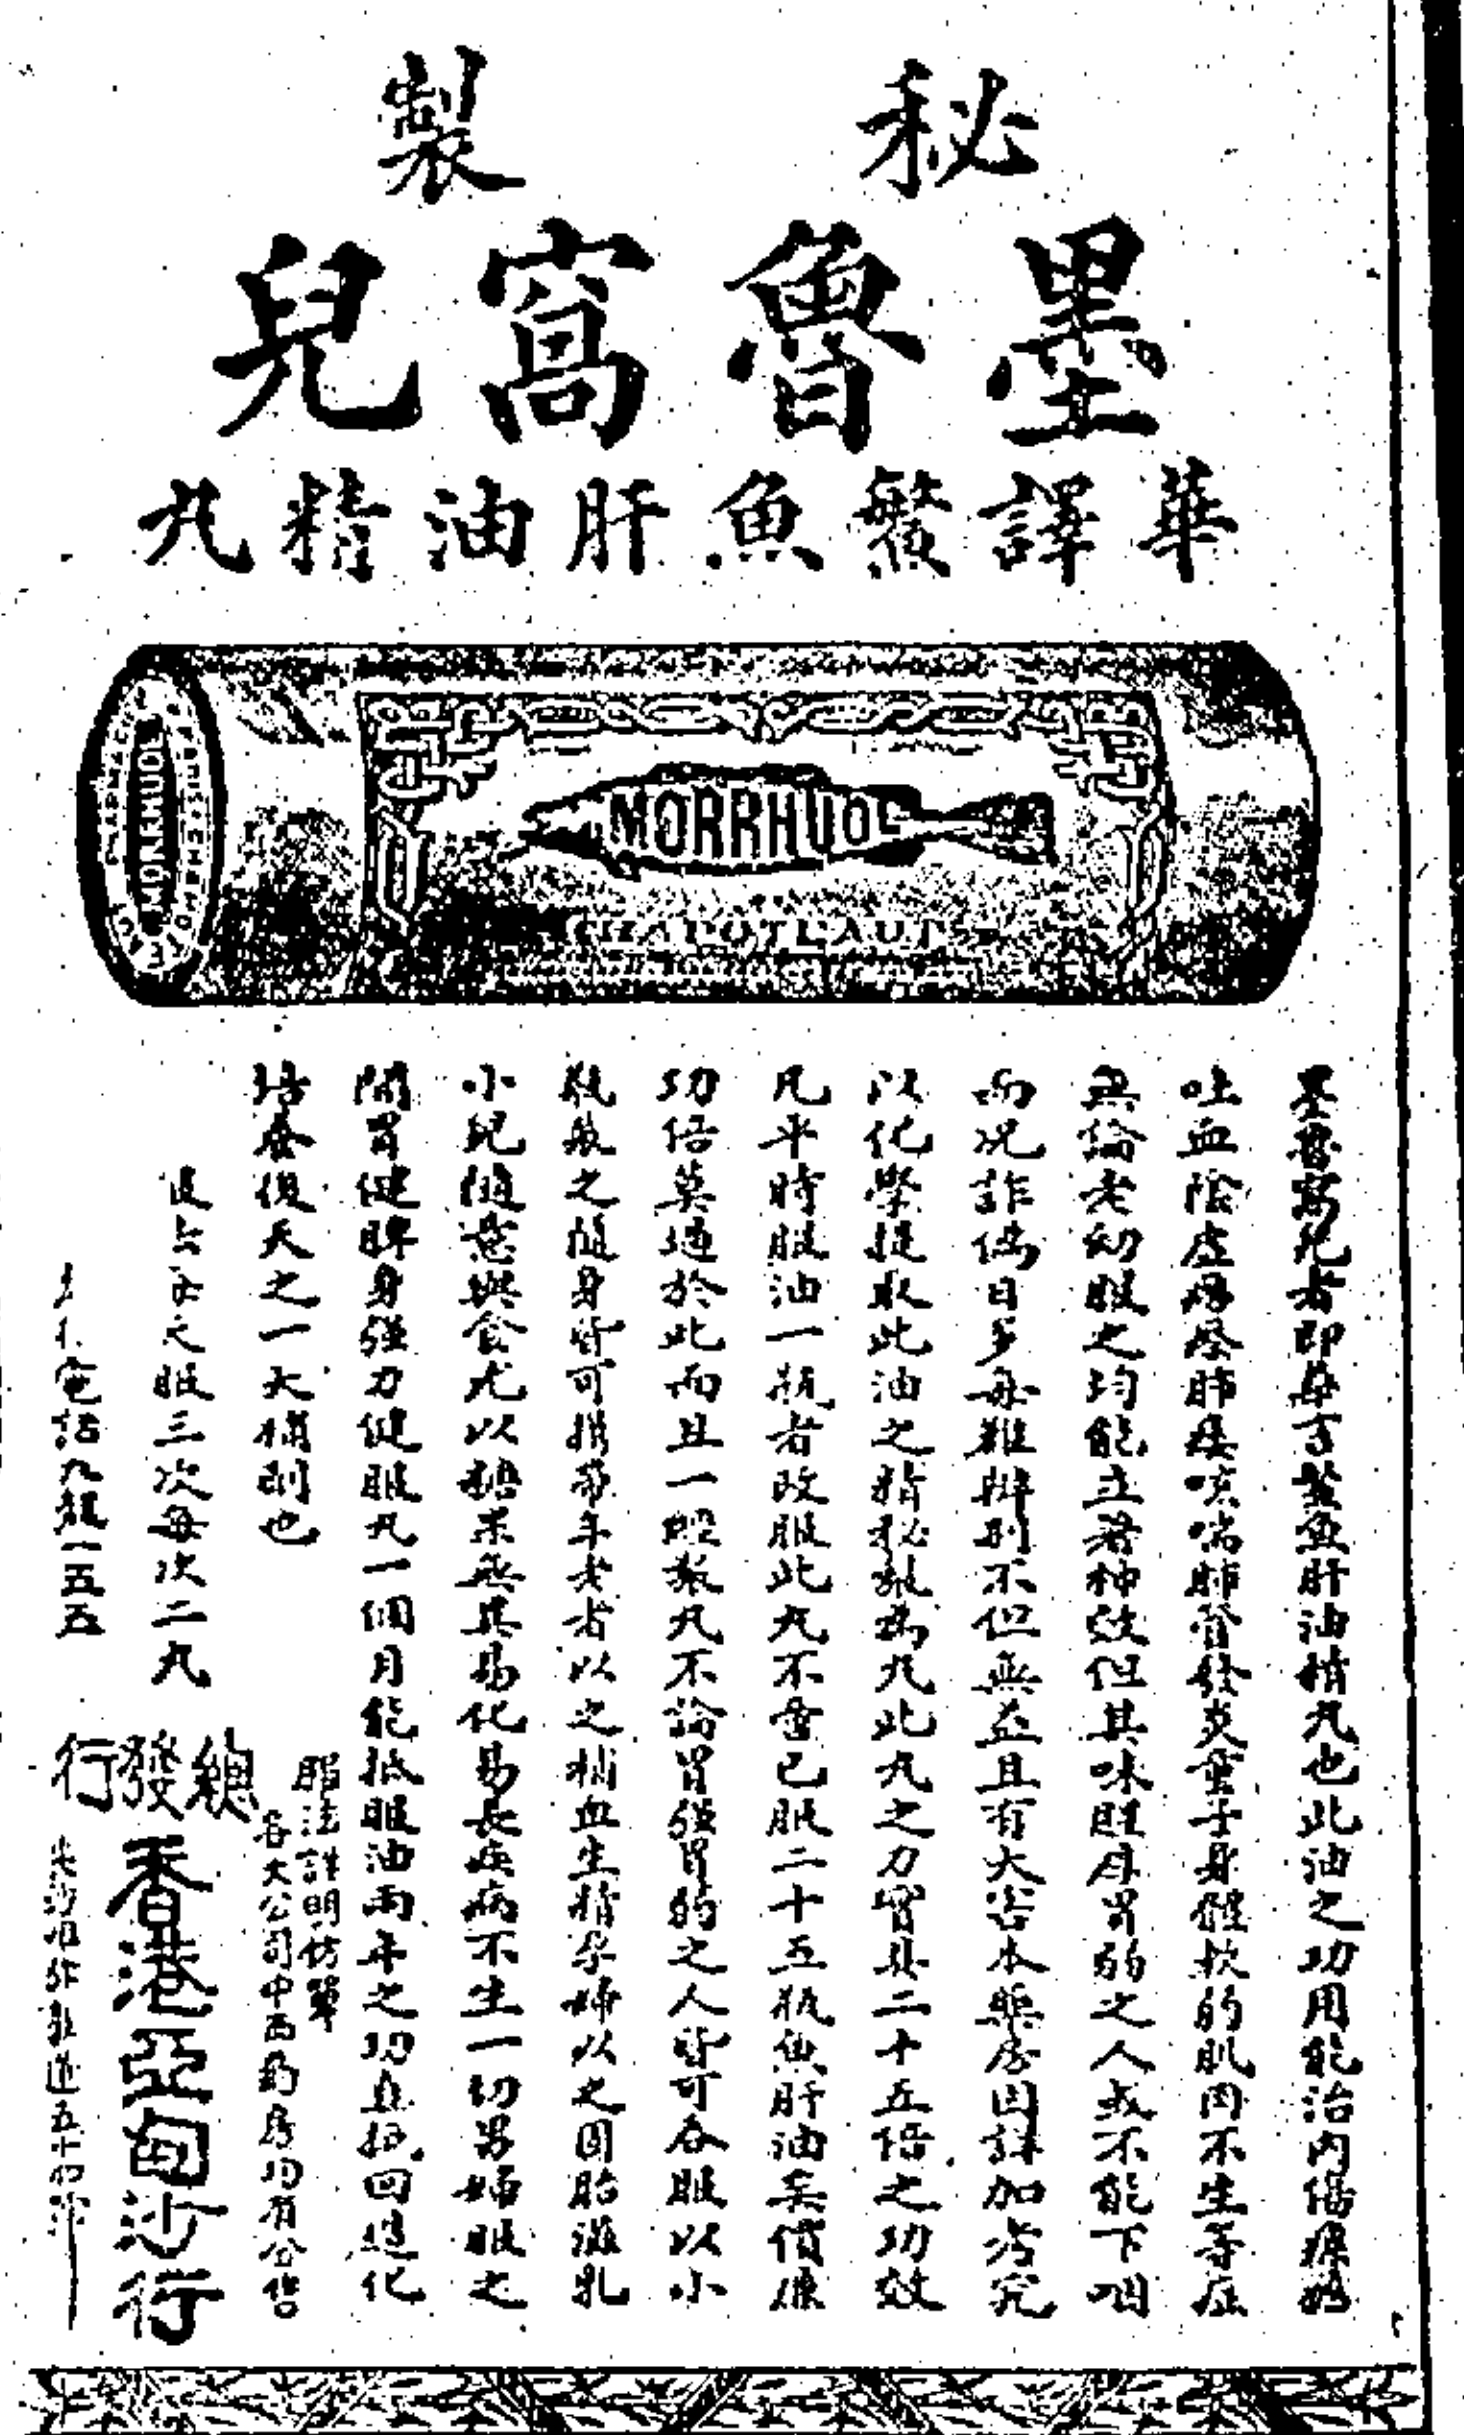 秘製
墨魯窩兒
華譯鰵魚肝油精丸
MORRHUOL
MORRHUOL
CHAPOTEAUT
墨魯窩兒者即 魚肝油精丸也此油之功用能治內傷
吐血陰虛 肺 咳喘肺管發炎童子身體軟弱肌肉不生等症
無論老幼服之均能立著神效但其味腥 胃弱之人或不能下咽
而况詐偽日多每難辦別不但無益且有大害本藥房因詳加考究
以化學提取此油之精秘製為丸此丸之力實具二十五倍之功效
凡平時服油一瓶者改服此丸不啻已服二十五瓶魚肝油矣價廉
功倍莫過於此而且一 丸不論胃強胃弱之人皆可吞服以小
瓶 之隨身皆可携帶年老者以之補血生精孕婦以之固胎滋乳
小兒隨意與食尤以糖菓無異易化易長疾病不生一切男婦服之
開胃健脾身強力健服丸一個月能抵服油兩年之功直挽回造化
培養後天之一大補劑也
服三次每次二丸
服法詳明仿單
各大公司中西藥房均有分售
總發行
香港亞甸沙行
電話九龍一五五
道五十四號